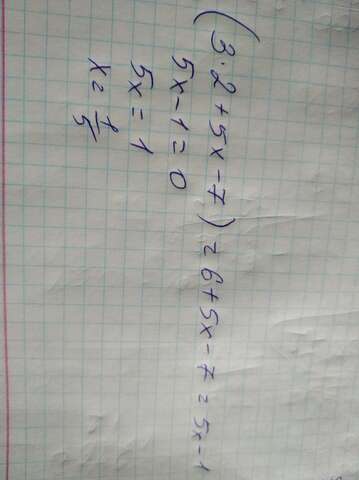 (3·2+5x-7)=6+5x-7=5x-1
5x-1=0
5x=1
x=1/5